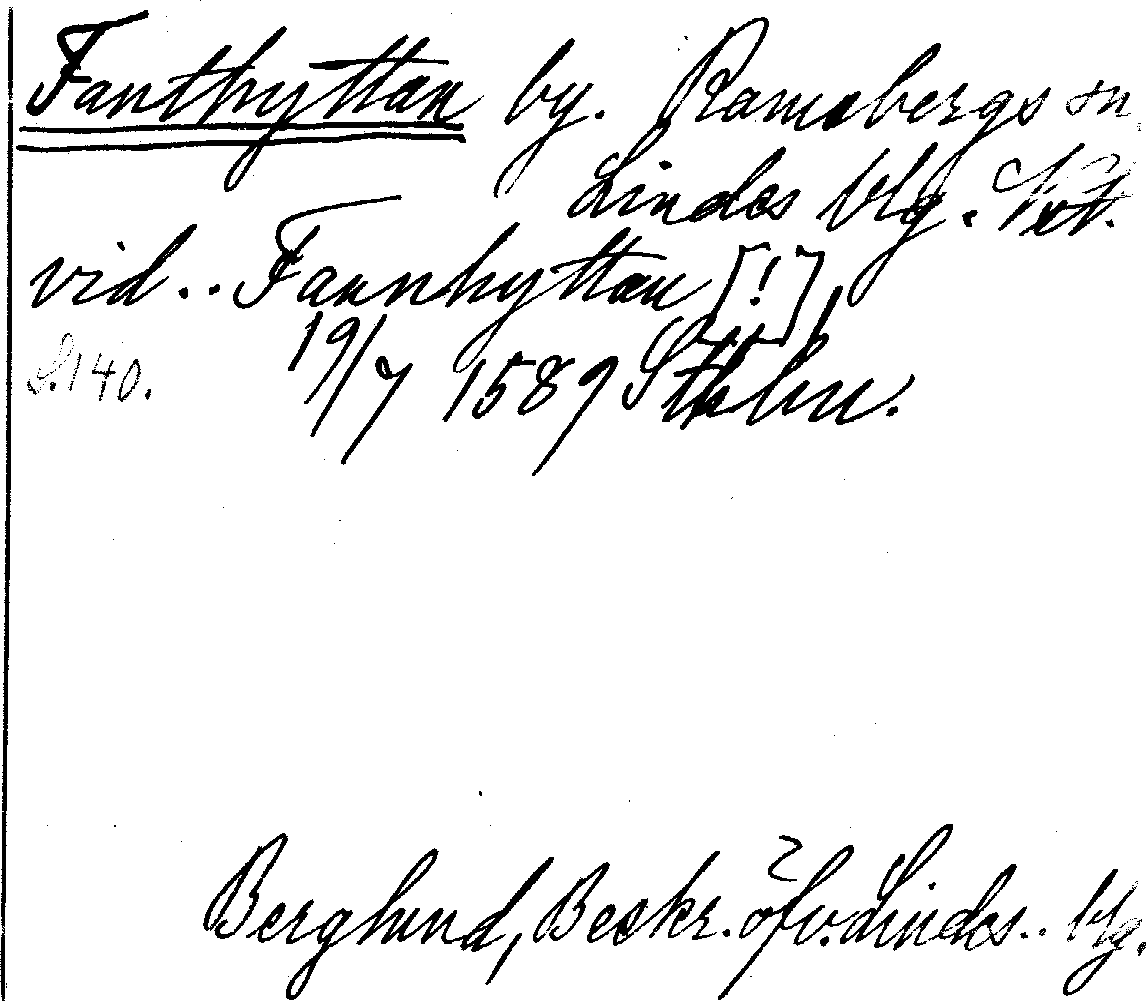 Fanthyttan by. Ramsbergs sn.
Lindes blg. Vstm.
vid .. Fannhyttan [!]
S. 140. 19/7 1589 Sthlm.
Berglund, Beskr. öfv. Lindes.. blg.